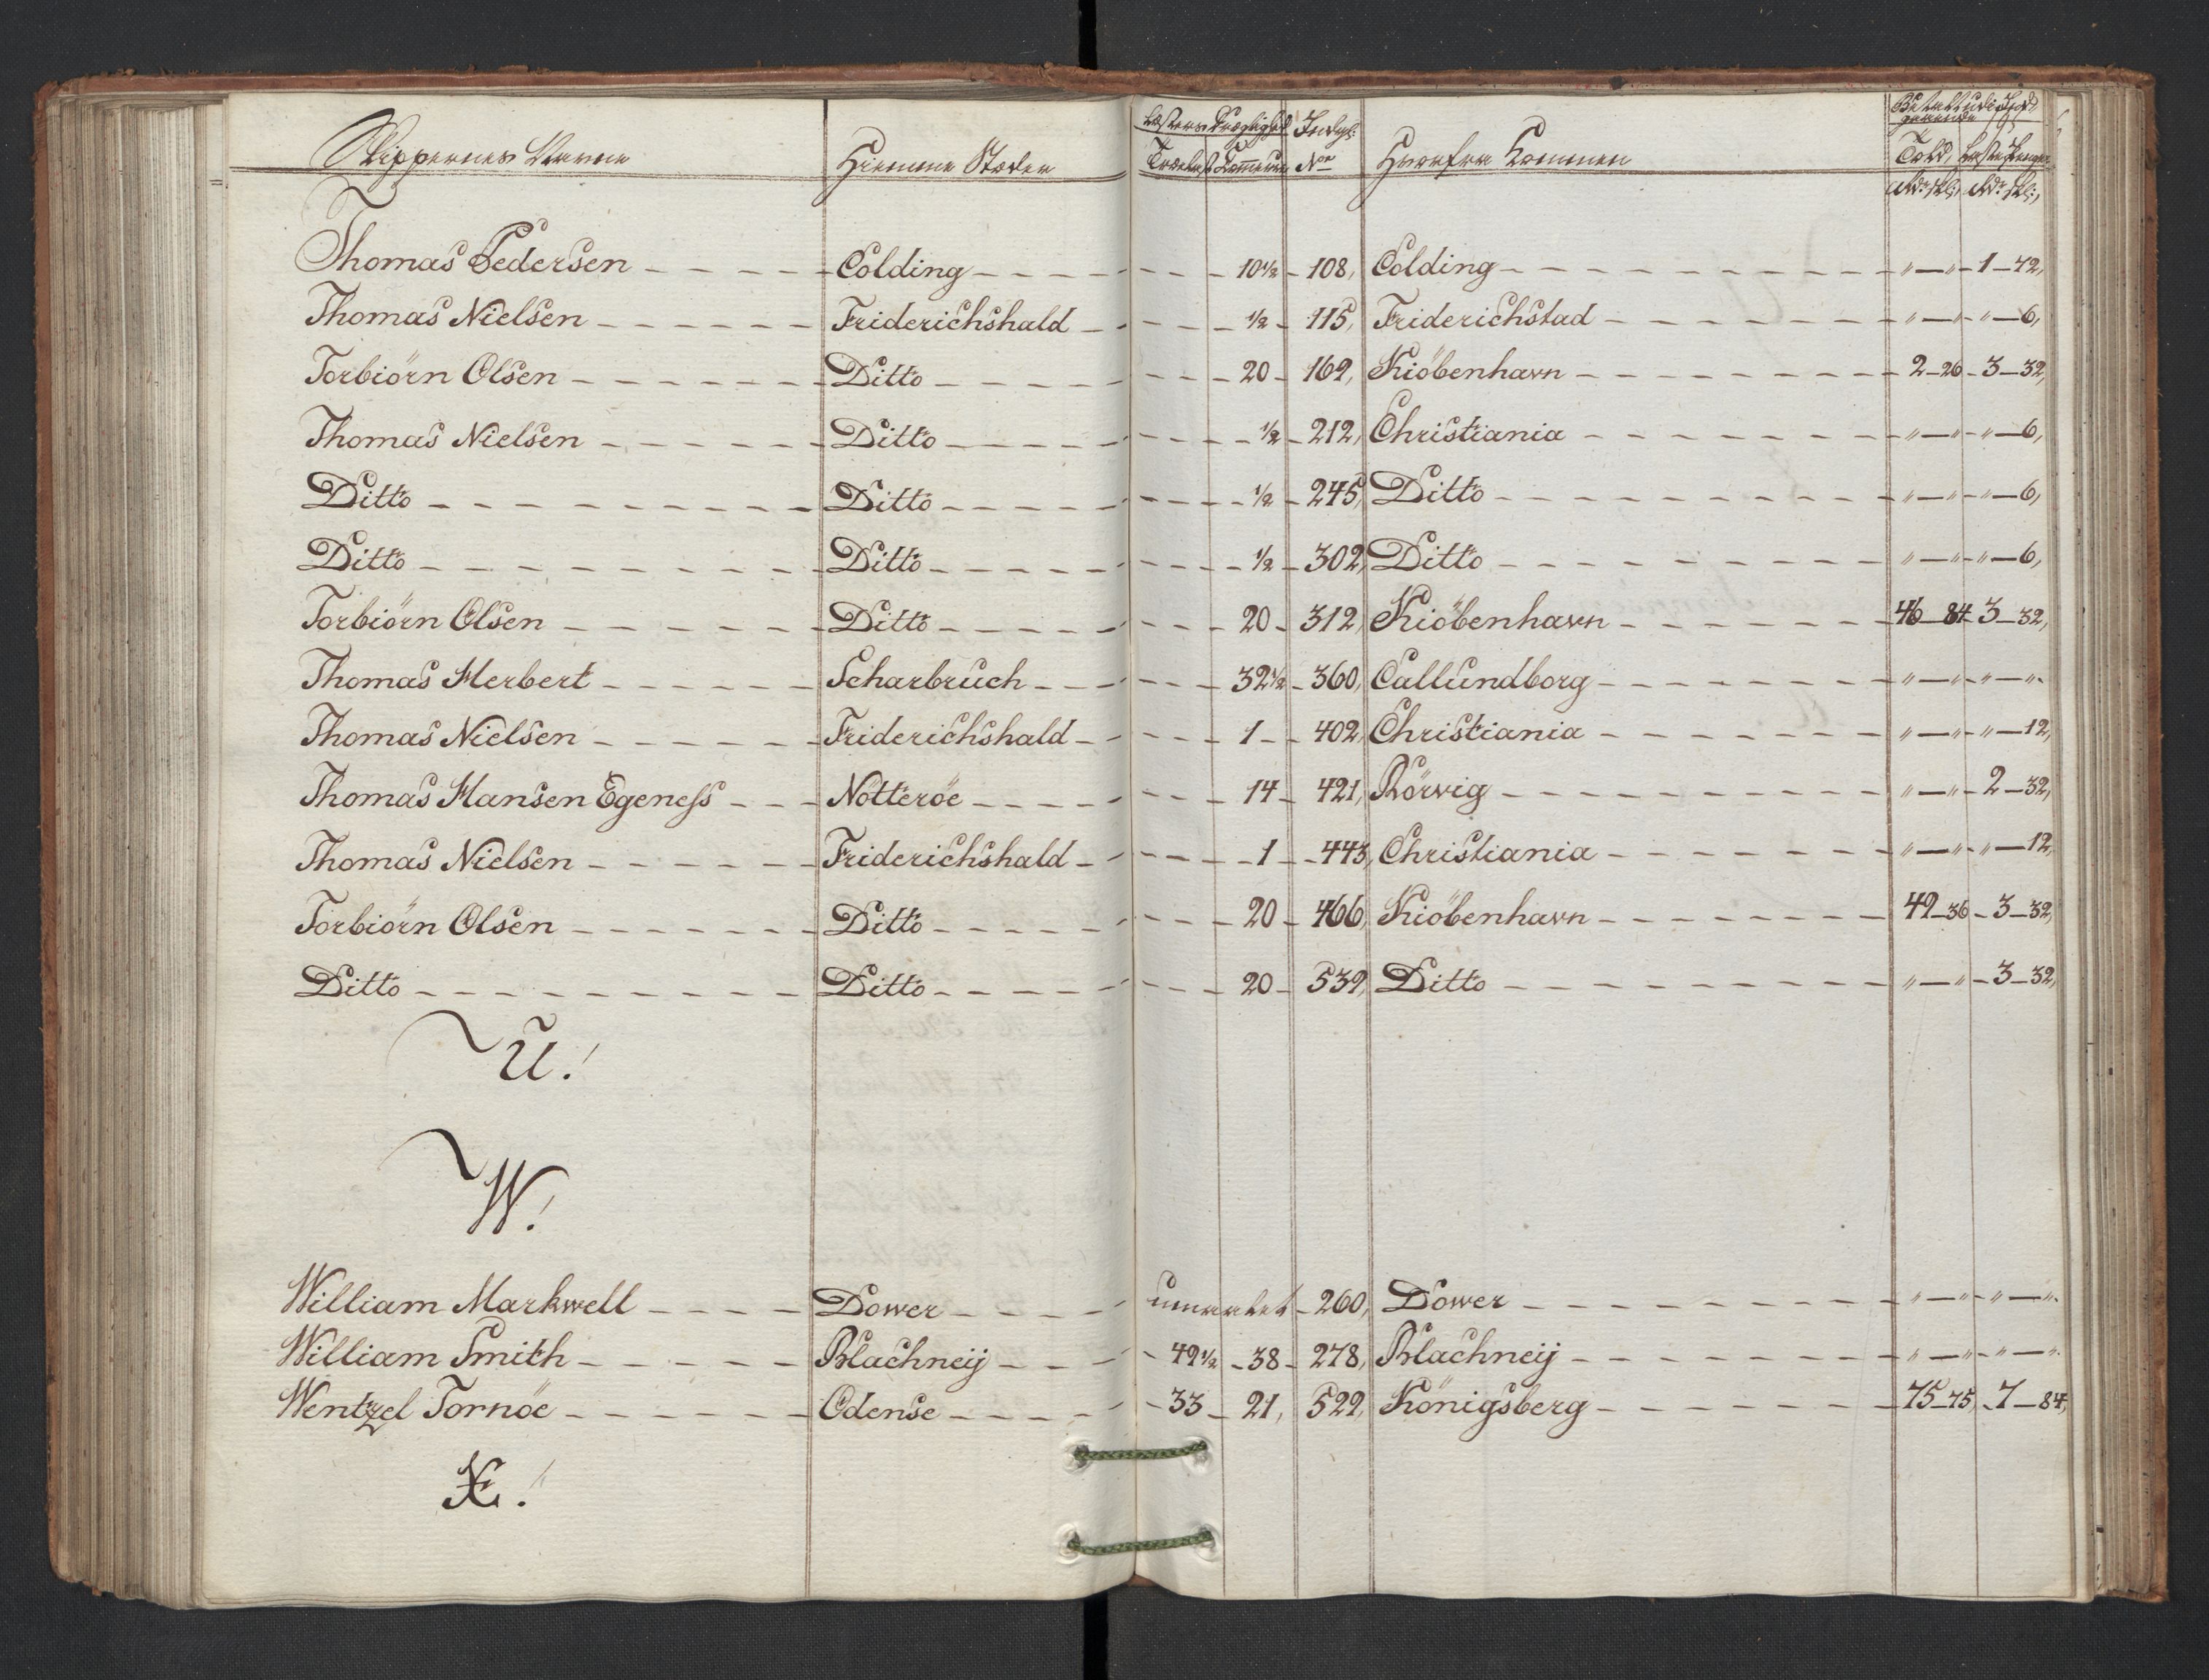 Skippernes Navne Hiemme Stæder Læsters Drægtighed Indgl: Hvorfra Kommen Betalt udi Ind
gaaende
Trælast Commerce No Told, Læstepenge
Rdr skl: Rdr skl:
Thomas Pedersen - Colding - 10½ - 108, Colding - " - " - 1 - 72,
Thomas Nielsen - Friderichshald - ½ - 115, Friderichstad - " - " - " - 6,
Torbiörn Olsen - Ditto - 20 - 169, Kiöbenhavn - 2 - 26 - 3 - 32,
Thomas Nielsen - Ditto - ½ - 212, Christiania - " - " - " - 6,
Ditto - Ditto - ½ - 245, Ditto - " - " - " - 6,
Ditto - Ditto - ½ - 302, Ditto - " - " - " - 6,
Torbiörn Olsen - Ditto - 20 - 312, Kiöbenhavn - 46 - 84 - 3 - 32,
Thomas Herbert - Scharbruch - 32½ - 360, Callundborg - " - " - " - "
Thomas Nielsen - Friderichshald - 1 - 402, Christiania - " - " - " - 12,
Thomas Hansen Egeness - Notteröe - 14 - 421, Rörvig - " - " - 2 - 32,
Thomas Nielsen - Friderichshald - 1 - 443, Christiania - " - " - " - 12,
Torbiörn Olsen - Ditto - 20 - 466, Kiöbenhavn - 49 - 36 - 3 - 32,
Ditto - Ditto - 20 - 539, Ditto - " - " - 3 - 32,
U!
W!
William Markwell - Dower - umaalet - 260, Dower - " - " - " - "
William Smith - Blachneij - 49½ - 38 - 278, Blachneij - " - " - " - "
Wentzel Tornöe - Odense - 33 - 21, 529, Königsberg - 75 - 75, - 7 - 84,
X!